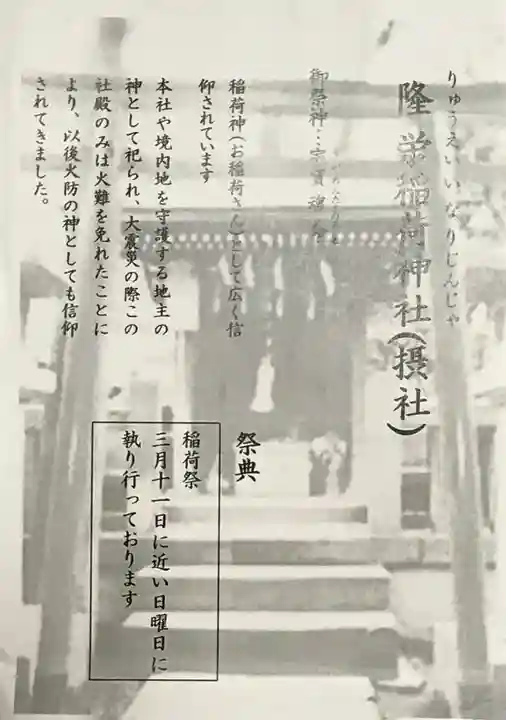 りゅうえいいなりじんじゃ
隆栄稲荷神社(摂社)
御祭神:宇賀魂命
稲荷神(お稲荷さん)として広く信
仰されています
本社や境内地を守護する地主の
神として祀られ、大震災の際この
社殿のみは火難を免れたことに
より、以後火防の神としても信仰
されてきました。
祭典
稲荷祭
三月十一日に近い日曜日に
執り行っております